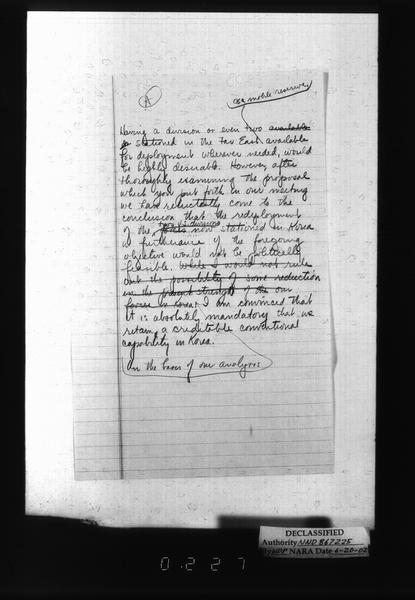 A
as a mobile reserve
Having a division or even two available
to stationed in the Far East available
for deployment wherever needed, would
be highly desirable. However, after
thoroughly examining the proposal
which you put forth in our meeting
we have reluctantly come to the
conclusion that the redeployment
two US divisions
of the now stationed in Korea
in furtherance of the foregoing
objective would not be politically
feasible. While I would not rule
out the possibility of some reduction
in the present strength of the our
forces in Korea, I am convinced that
it is absolutely mandatory that we
retain a creditable conventional
capability in Korea.
On the basis of our analysis
DECLASSIFIED
Authority NND 867225
By NARA Date 6-20-02
0227